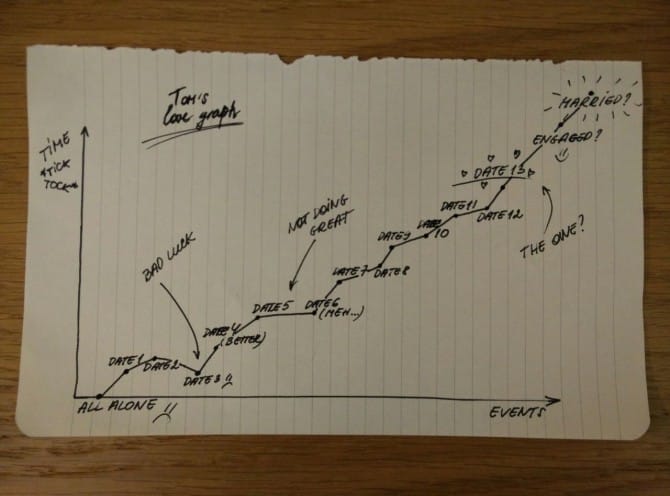 Tom's
love graph
TIME
*TICK
TOCK*
MARRIED?
ENGAGED?
DATE 13
THE ONE?
DATE 12
DATE 11
DATE
10
DATE 9
DATE 8
DATE 7
NOT DOING
GREAT
DATE 6
(MEH...)
DATE 5
BAD LUCK
DATE 4
(BETTER)
DATE 3
DATE 2
DATE 1
ALL ALONE
EVENTS